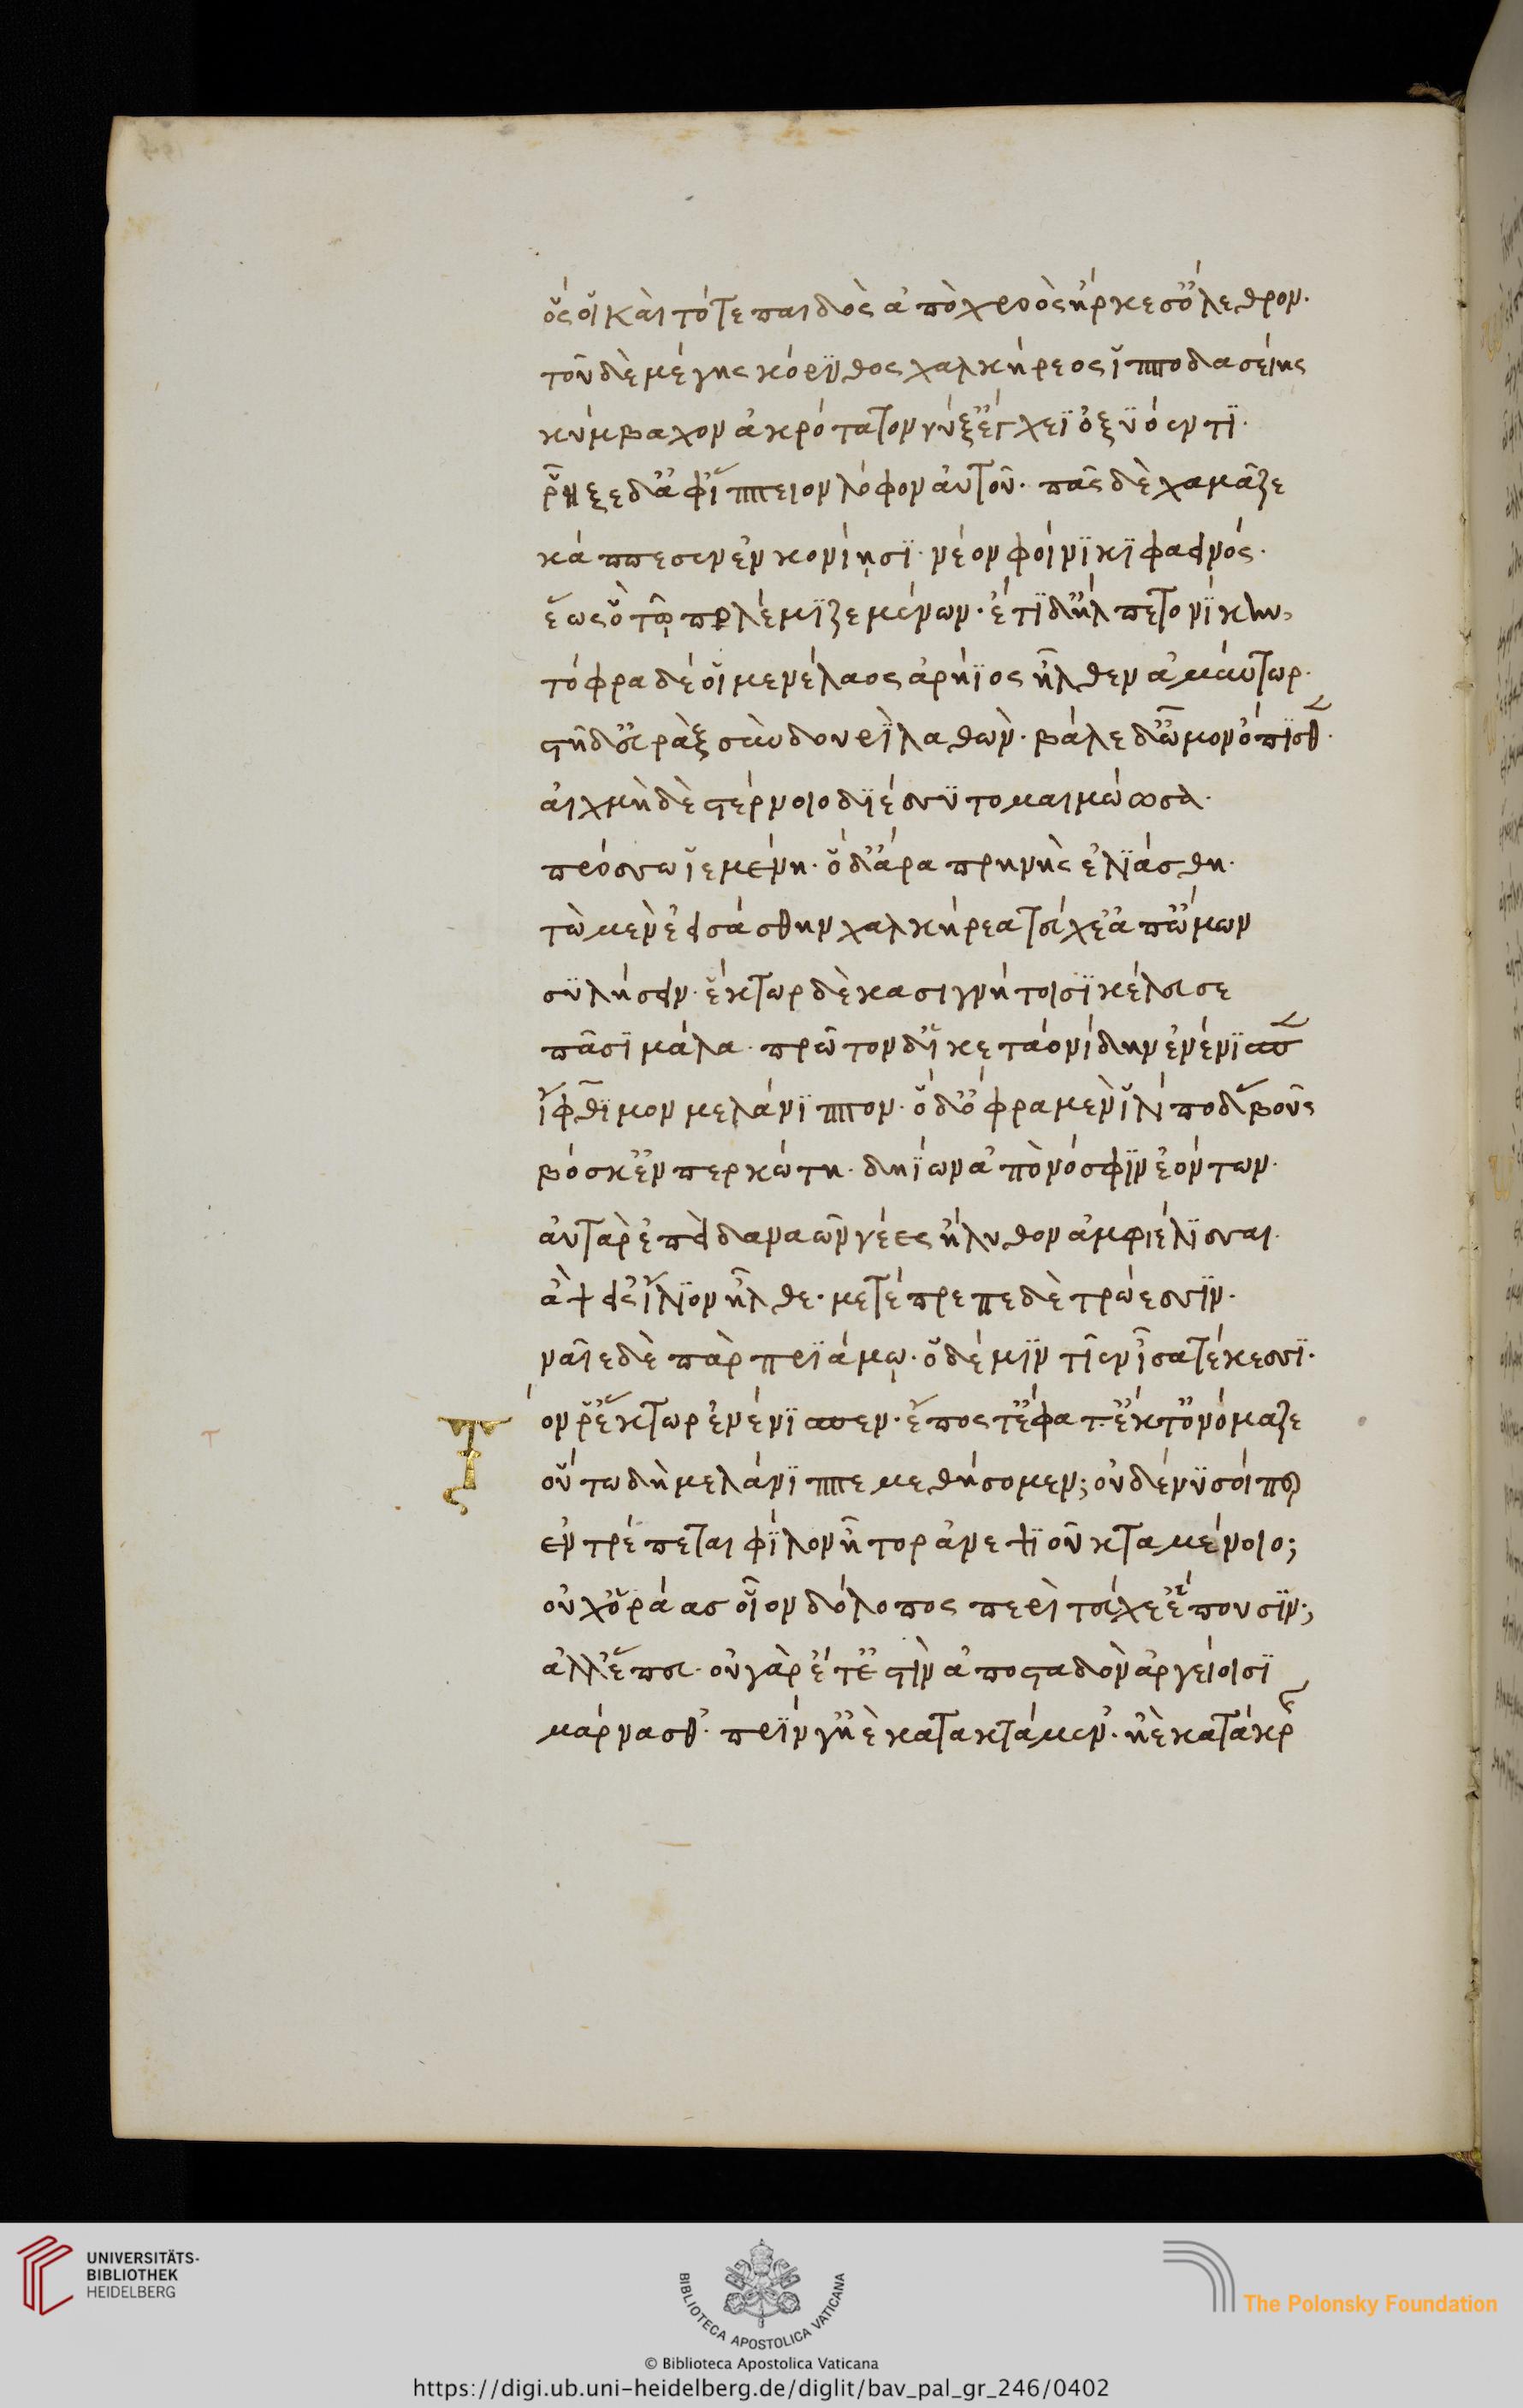 ὅς οἱ καὶ τότε παιδὸς ἀπὸ χροὸς ἤρκεσ' ὄλεθρον·
τοῦ δὲ μέγης κόρυθος χαλκήρεος ἱπποδασείης
κύμβαχον ἀκρότατον νύξ' ἔγχεϊ ὀξυόεντι·
ῥῆξε δ' ἀφ' ἵππειον λόφον αὐτοῦ· πᾶς δὲ χαμᾶζε
κάππεσεν ἐν κονίῃσι· νέον φοίνικι φαεινός·
ἕως ὁ τῷ πολέμιζε μένων· ἔτι δ' ἤλπετο νίκην,
τόφρα δέ οἱ μενέλαος ἀρήϊος ἦλθεν ἀμύντωρ·
στῆ δ' εὐρὰξ σὺν δουρὶ λαθὼν· βάλε δ' ὦμον ὄπισθ·
αἰχμὴ δὲ στέρνοιο διέσσυτο μαιμώωσα·
πρόσσω ἱεμένη· ὁ δ' ἄρα πρηνὴς ἐλιάσθη·
τὼ μὲν ἐεισάσθην χαλκήρεα τεύχε' ἀπ' ὤμων
συλήσειν· ἕκτωρ δὲ κασιγνήτοισι κέλευσε
πᾶσι μάλα· πρῶτον δ' ἱκεταονίδην ἐνένιπε
ἴφθιμον μελάνιππον· ὁ δ' ὄφρα μὲν εἰλίποδας βοῦς
βόσκ' ἐν περκώτη· δηίων ἀπὸ νόσφιν ἐόντων·
αὐτὰρ ἐπεὶ δαναῶν νέες ἤλυθον ἀμφιέλισσαι·
ἂψ εἰς ἴλιον ἦλθε· μετέπρεπε δὲ τρώεσσιν·
ναῖε δὲ πὰρ πριάμῳ· ὁ δέ μιν τῖεν ἶσα τέκεσσι·
τόν ῥ' ἕκτωρ ἐνένιπεν· ἔπος τ' ἔφατ' ἔκ τ' ὀνόμαζε
οὕτω δὴ μελάνιππε μεθήσομεν; οὐδέ νυ σοί περ
ἐντρέπεται φίλον ἦτορ ἀνεψιοῦ κταμένοιο;
οὐχ ὁράας οἷον δόλοπος περὶ τεύχε' ἕπουσιν;
ἀλλ' ἕπευ· οὐ γὰρ ἔτ' ἔστιν ἀποσταδὸν ἀργείοισι
μάρνασθ· πρίν γ' ἠὲ κατακτάμεν· ἠὲ κατάκρ
UNIVERSITÄTS-
BIBLIOTHEK
HEIDELBERG
BIBLIOTECA APOSTOLICA VATICANA
The Polonsky Foundation
© Biblioteca Apostolica Vaticana
https://digi.ub.uni-heidelberg.de/diglit/bav_pal_gr_246/0402